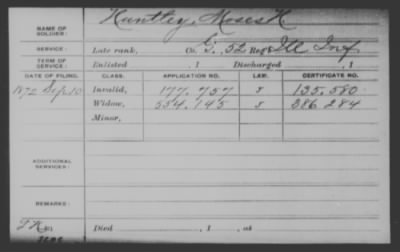 NAME OF SOLDIER: Huntley, Moses H
SERVICE: Late rank, Co. G, 52 Reg't Ill Inf
TERM OF SERVICE: Enlisted , 1 Discharged , 1
DATE OF FILING. CLASS. APPLICATION NO. LAW. CERTIFICATE NO.
1872 Sep 10 Invalid, 177.757 135.580
Widow, 554.145 386 284
Minor,
ADDITIONAL SERVICES:
REMARKS:
Died , 1 , at